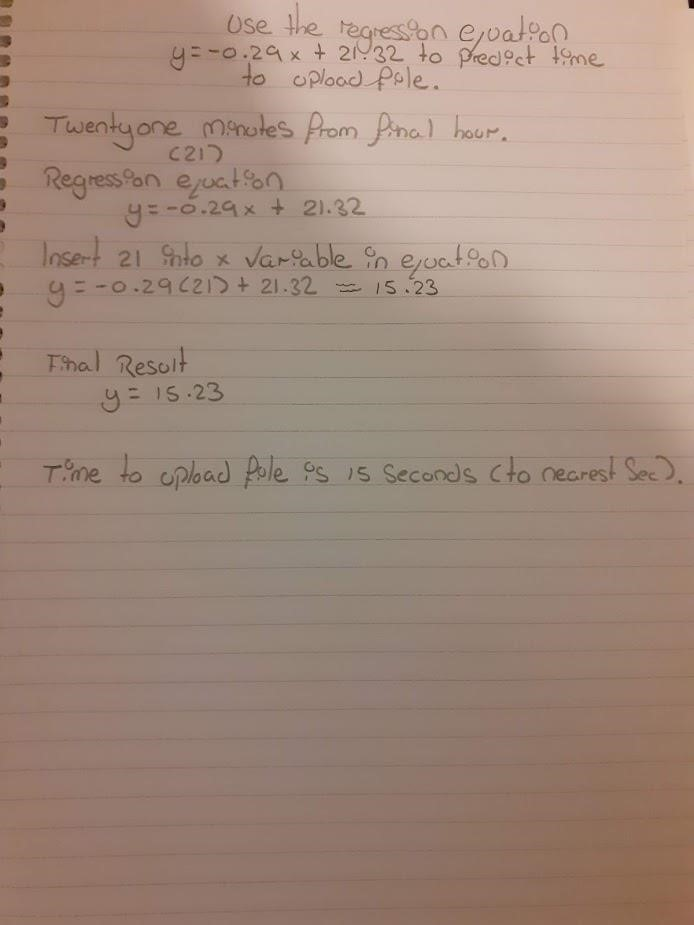 Use the regression equation
y = -0.29x + 21.32 to predict time
to upload file.
Twentyone minutes from final hour.
(21)
Regression equation
y = -0.29x + 21.32
Insert 21 into x variable in equation
y = -0.29(21) + 21.32 ≈ 15.23
Final Result
y = 15.23
Time to upload file is 15 seconds (to nearest sec).